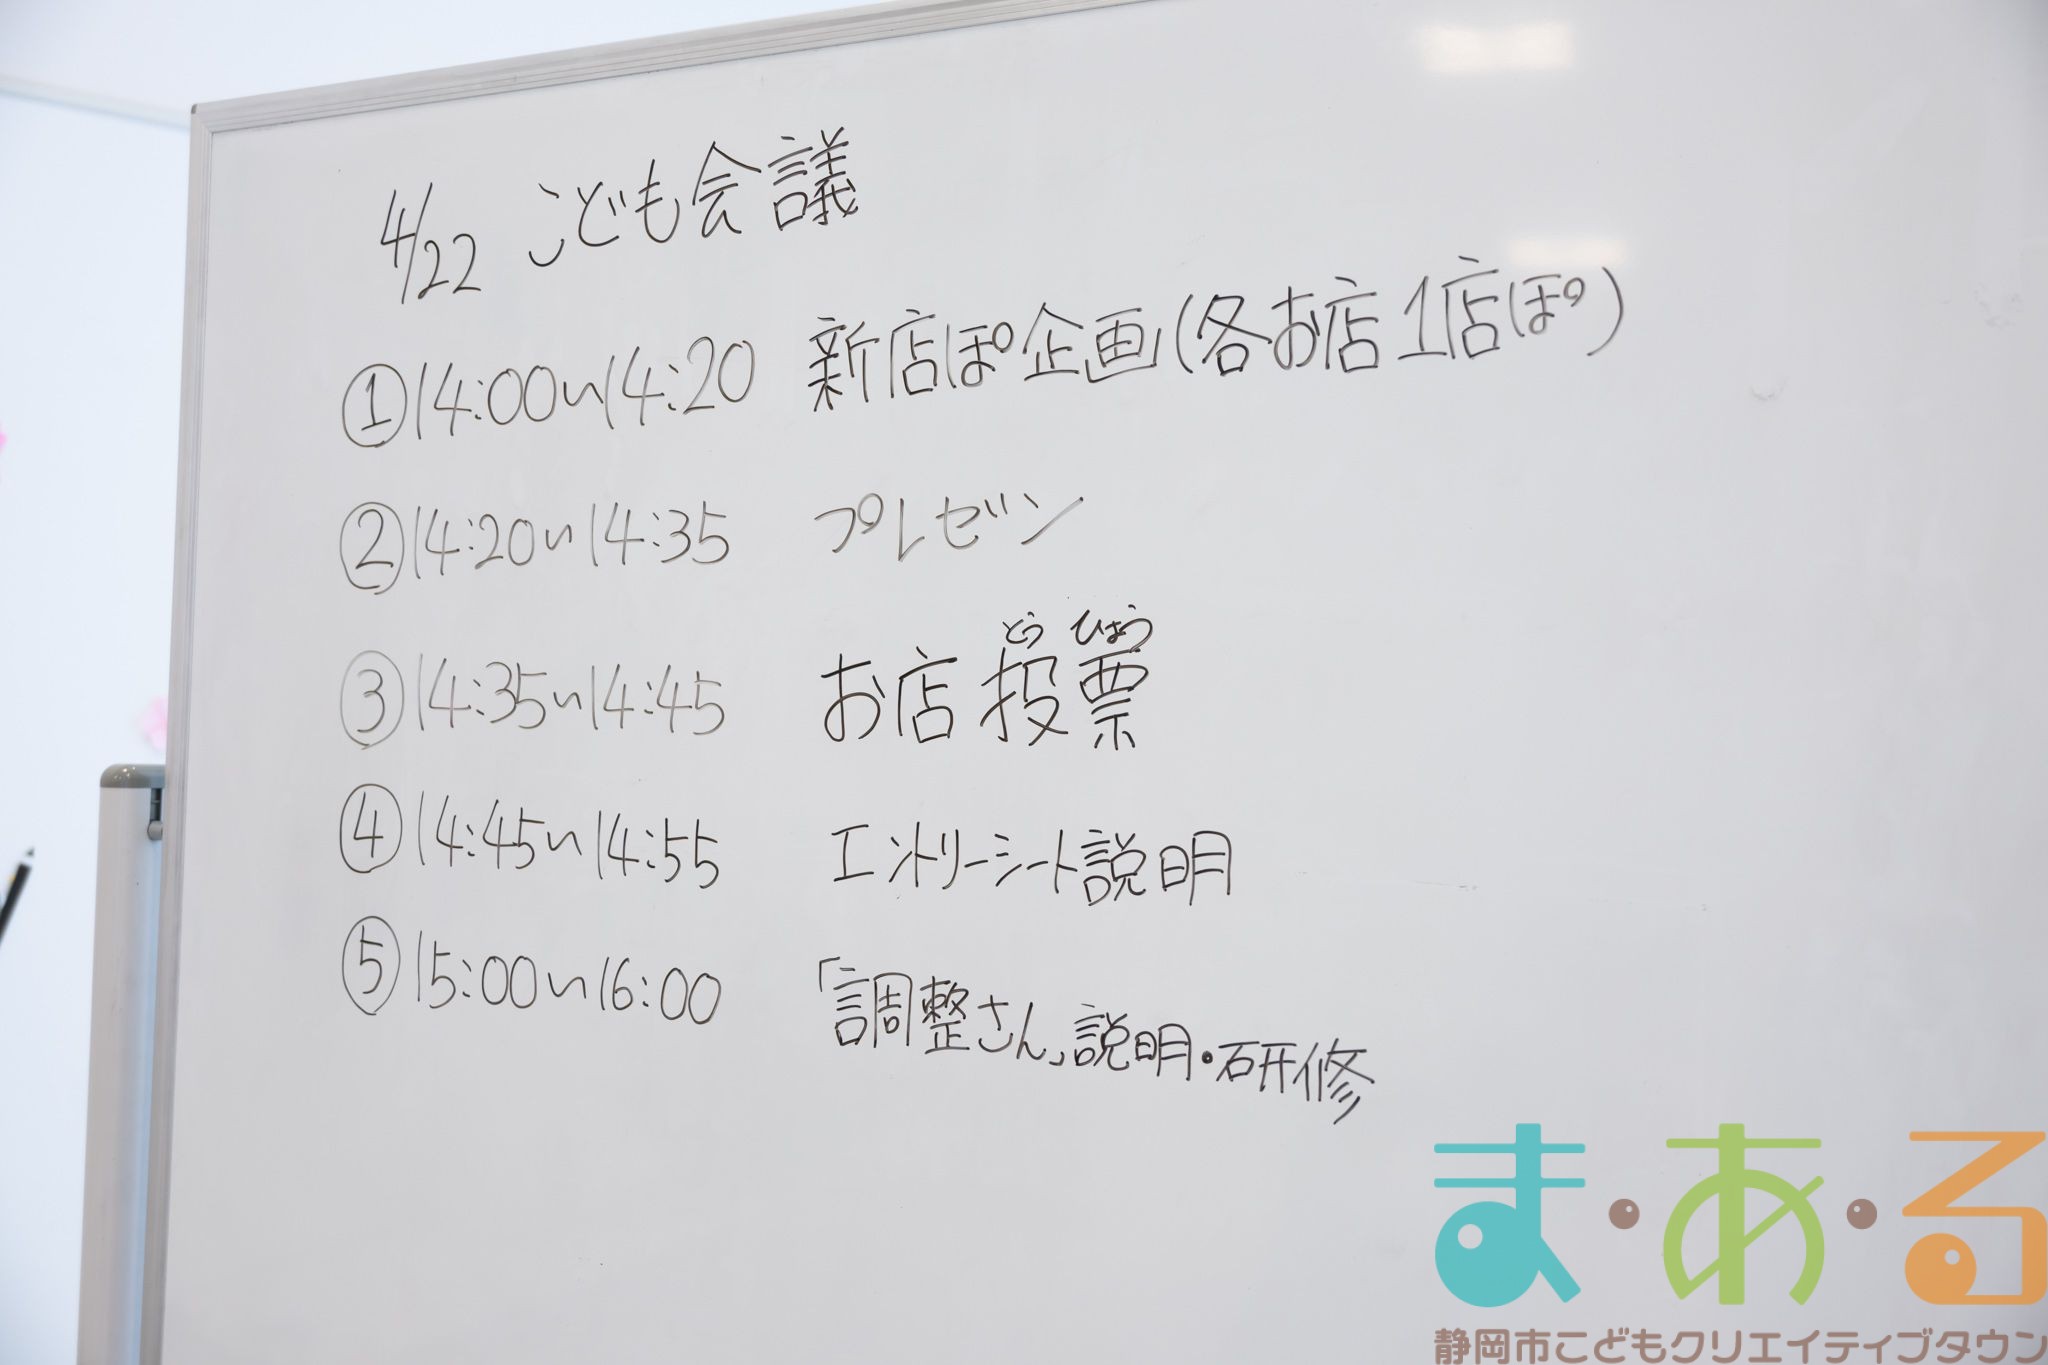 4/22 こども会議
①14:00～14:20 新店ぽ企画(各お店1店ぽ)
②14:20～14:35 プレゼン
とうひょう
③14:35～14:45 お店投票
④14:45～14:55 エントリーシート説明
⑤15:00～16:00 「調整さん」説明・研修
ま・あ・る
静岡市こどもクリエイティブタウン